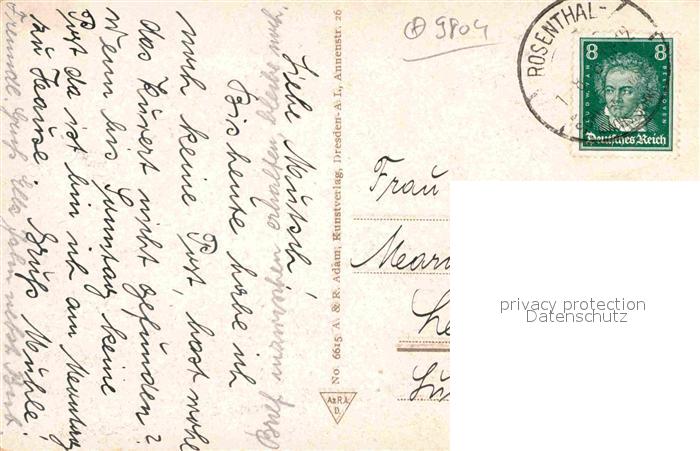 Liebe Mutsch!
Bis heute habe ich
noch keine Post, hast wohl
das Kuvert nicht gefunden?
Wenn bis Sonntag keine
Post da ist bin ich am Montag
zu Hause. Gruß Mühle.
Freundl. Gruß
Brief inzwischen erhalten, bleibe
No. 6615 A. & R. Adam, Kunstverlag, Dresden-A. I., Annenstr. 26
A.&R.A.
D.
9804
ROSENTHAL-
8 8
LUDW. VAN BEETHOVEN
Deutsches Reich
Frau
privacy protection
Datenschutz